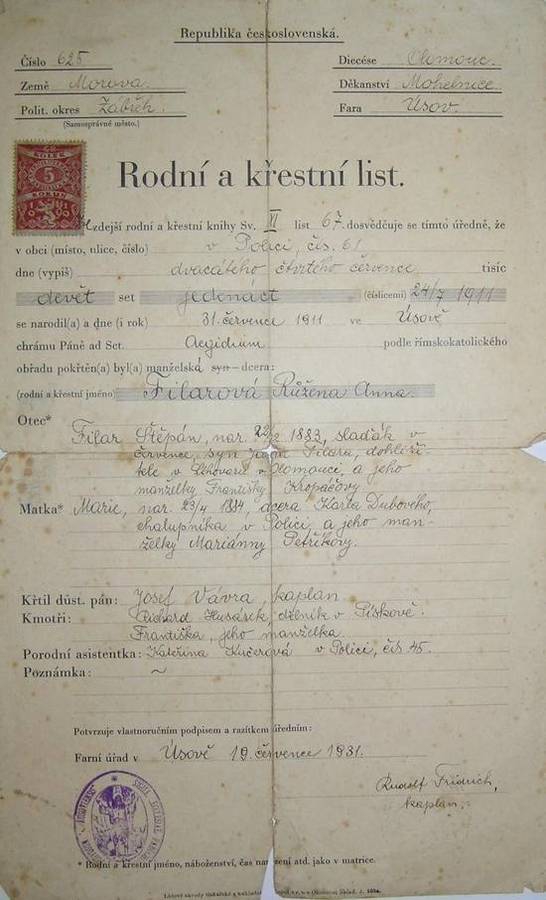 Republika československá.
Číslo 625 Diecése Olomouc.
Země Morava. Děkanství Mohelnice
Polit. okres Zábřeh. Fara Úsov.
(Samosprávné město.)
KOLEK
5
KORUN
Rodní a křestní list.
Zdejší rodní a křestní knihy Sv. XI list 67. dosvědčuje se tímto úředně, že
v obci (místo, ulice, číslo) v Polici, čís. 61
dne (vypiš) dvacátého čtvrtého července tisíc
devět set jedenáct (číslicemi) 24/7 1911
se narodil(a) a dne (i rok) 31. července 1911 ve Úsově
chrámu Páně ad Sct. Aegidium podle římskokatolického
obřadu pokřtěn(a) byl(a) manželská syn– dcera:
(rodní a křestní jméno) Filarová Růžena Anna.
Otec*
Filar Štěpán, nar. 1883, slaďák v
Července, syn Filara, dohliži-
tele v lihovaru v Olomouci, a jeho
manželky Františky Kropáčovy
Matka* Marie, nar. 23/4 1884, dcera Karla Dubového,
chalupníka v Polici, a jeho man-
želky Mariánny Petříkovy.
Křtil důst. pán: Josef Vávra, kaplan
Kmotři: Richard Husárek, dělník v Pískově
Františka, jeho manželka.
Porodní asistentka: Kateřina Kučerová v Polici, čís 45.
Poznámka: ~
Potvrzuje vlastnoručním podpisem a razítkem úředním:
Farní úřad v Úsově 19. července 1931.
Rudolf Fridrich,
kaplan,
* Rodní a křestní jméno, náboženství, čas narození atd. jako v matrice.